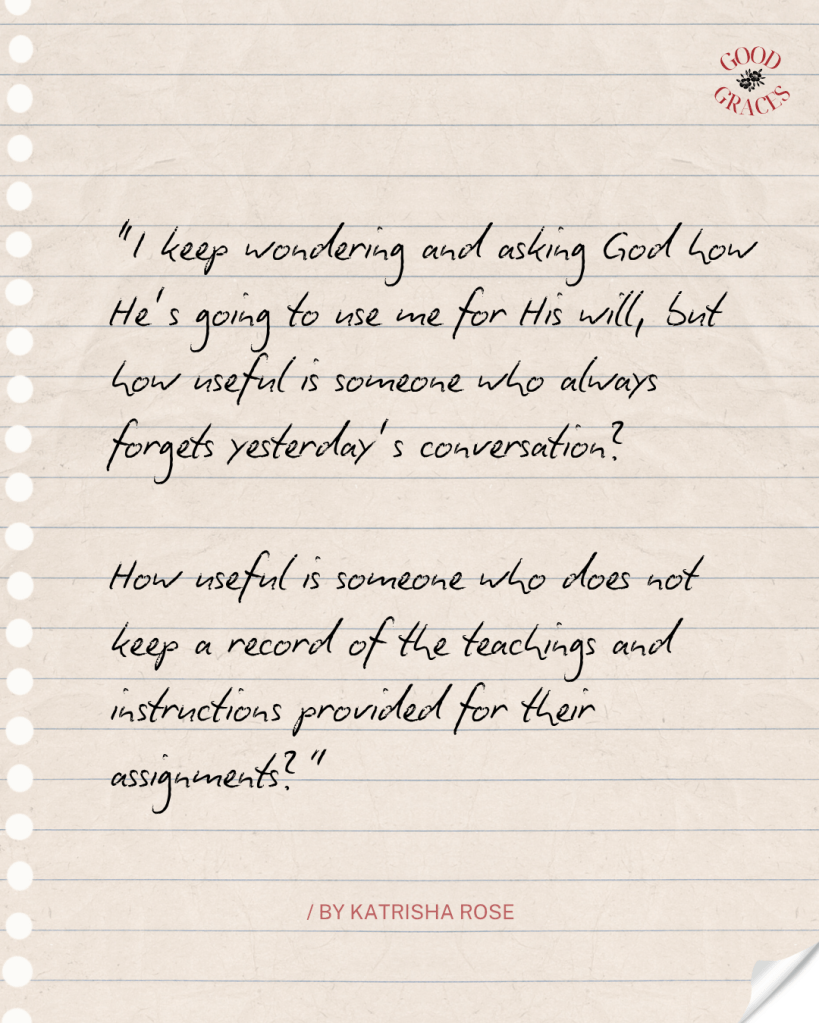 GOOD
GRACES
"I keep wondering and asking God how
He's going to use me for His will, but
how useful is someone who always
forgets yesterday's conversation?
How useful is someone who does not
keep a record of the teachings and
instructions provided for their
assignments?"
/ BY KATRISHA ROSE